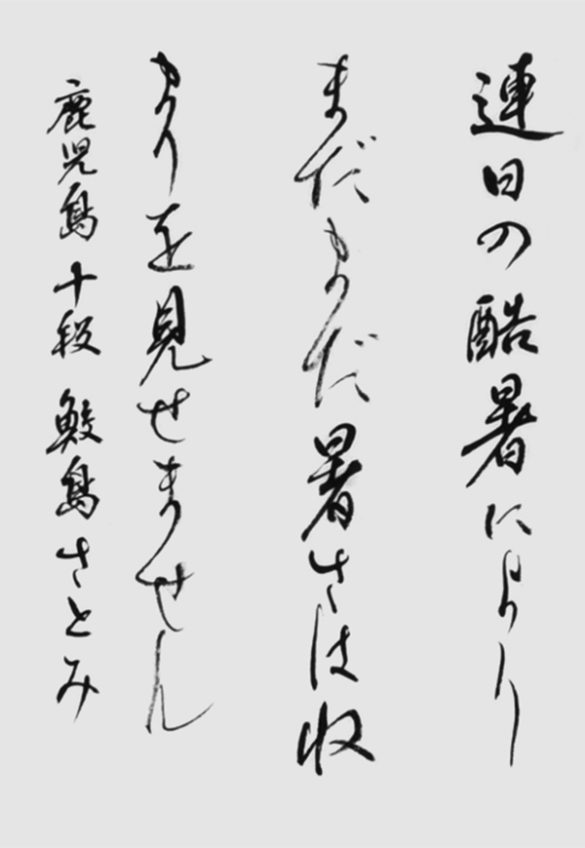 連日の酷暑により
まだまだ暑さは収
まりを見せません
鹿児島 十段 鮫島さとみ